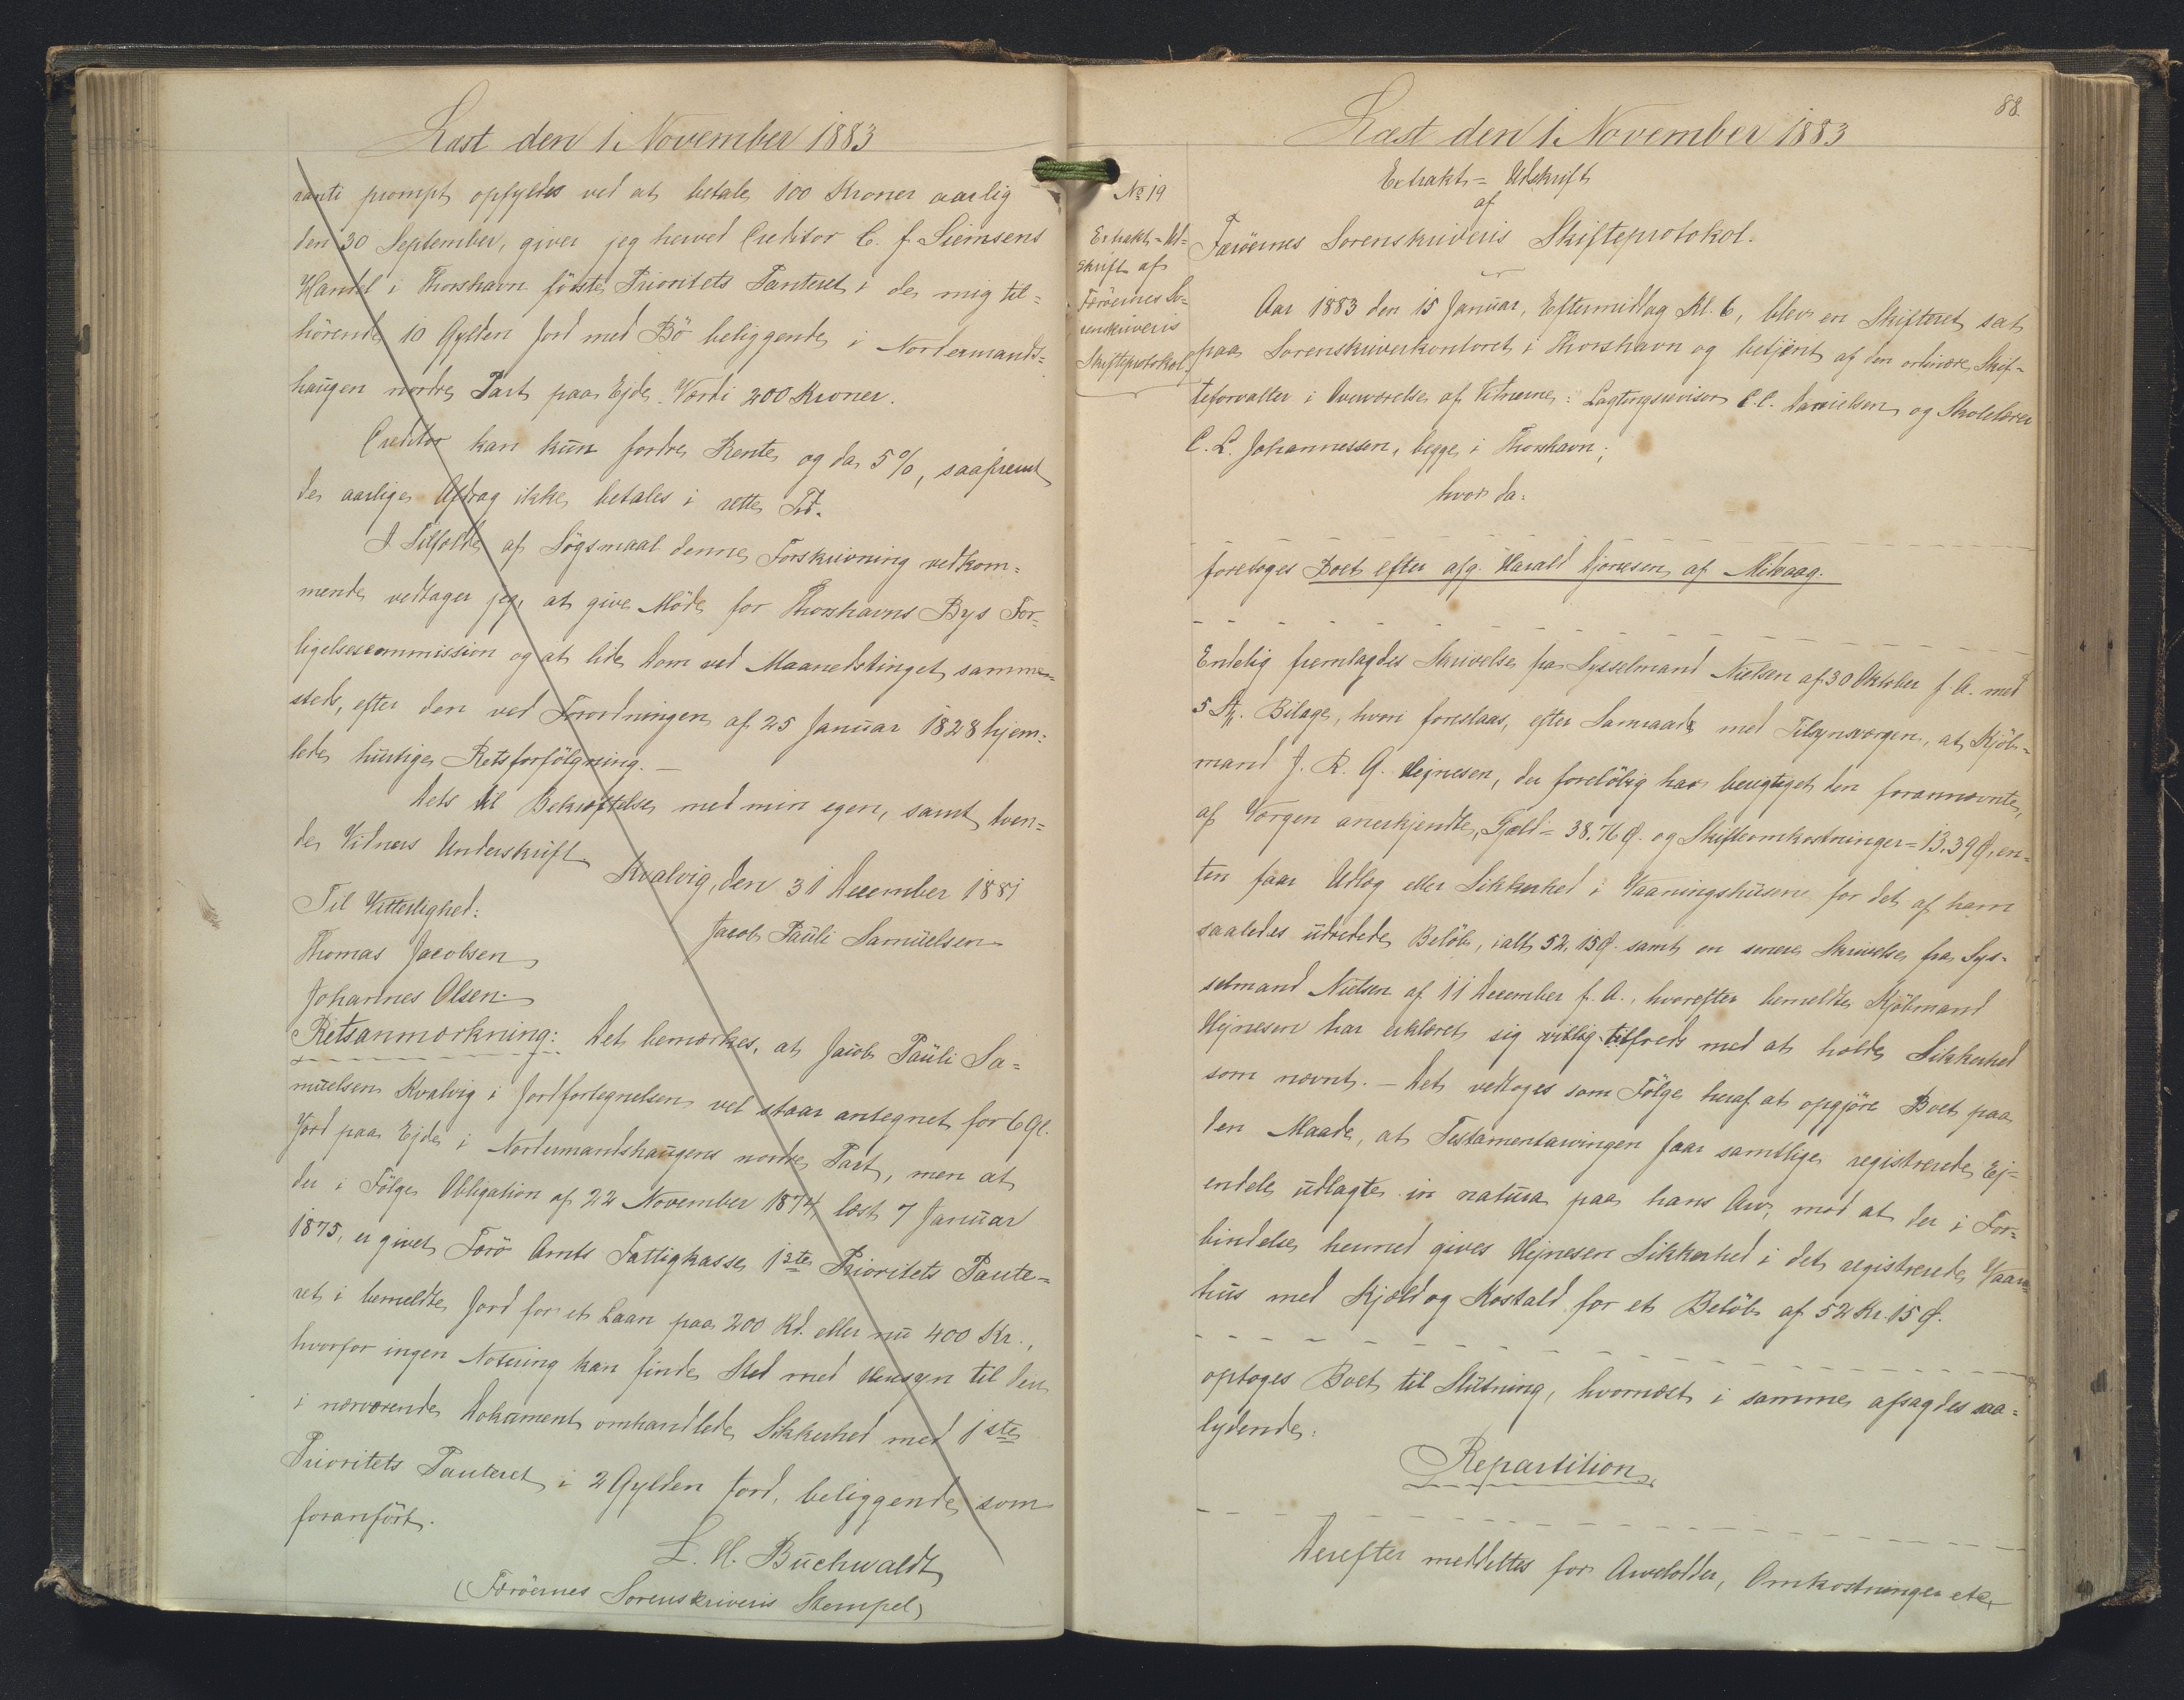 Læst den 1. November 1883
ranti prompt opfyldes ved at betale 100 Kroner aarlig
den 30 September, giver jeg herved Creditor C. f. Siemsens
Handel i Thorshavn förste Prioritets Panteret i de mig til=
hörende 10 Gylden Jord med Bö beliggende i Nordermands=
haugen nordre Part paa Ejde. Værdi 200 Kroner.
Creditor kan kun fordre Rente og da 5%, saafremt
de aarlige Afdrag ikke betales i rette Tid.
I Tilfælde af Sögsmaal denne Forskrivning vedkom=
mende vedtager jeg, at give Möde for Thorshavns Bys For=
ligelsescommission og at lide Dom ved Maanedstinget samme=
steds, efter den ved Forordningen af 25 Januar 1828 hjem=
lede hurtige Retsforfölgning.—
Dets til Bekræftelse med min egen, samt tven=
de Vidners Underskrift.
Kvalvig, den 31 December 1881
Til Vitterlighed:
Jacob Pauli Samuelsen
Thomas Jacobsen
Johannes Olsen.
Retsanmærkning: Det bemærkes, at Jacob Pauli Sa=
muelsen Kvalvig i Jordfortegnelsen vel staar antegnet for 6 Gl.
Jord paa Ejde i Nordermandshaugens nordre Part, men at
der i Fölge Obligation af 22 November 1874, læst 7 Januar
1875, er givet Færö Amts Fattigkasse 1ste Prioritets Pante=
ret i bemeldte Jord for et Laan paa 200 Rd. eller nu 400 Kr.,
hvorfor ingen Notering kan finde Sted med Hensyn til den
i nærværende Dokument omhandlede Sikkerhed med 1ste
Prioritets Panteret i 2 Gylden Jord, beliggende som
foranfört.
L. H. Buchwaldt
(Færöernes Sorenskriveris Stempel)
88.
Læst den 1. November 1883
No 19
Extrakt=Ud=
skrift af
Færöernes So=
renskriveris
Skifteprotokol.
Extrakt=Udskrift
af
Færöernes Sorenskriveris Skifteprotokol.
Aar 1883 den 15 Januar, Eftermiddag Kl. 6, blev en Skifteret sat
paa Sorenskriverkontoret i Thorshavn og betjent af den ordinære Skif=
teforvalter i Overværelse af Vidnerne: Lagtingsrevisor C.C. Danielsen og Skolelærer
C. L. Johannessen, begge i Thorshavn;
hvor da:
foretoges Boet efter afg. Harald Djonesen af Midvaag.
Endelig fremlagdes Skrivelse fra Sysselmand Nielsen af 30 Oktober f. A. med
5 St. Bilage, hvori foreslaas, efter Samraad med Tilsynsværgen, at Kjöb=
mand J. R. G. Hejnesen, der foreløbig har berigtiget den forannævnte,
af Værgen anerkjendte, Gjæld = 38.76 Ø. og Skifteomkostninger = 13.39 Ø, en=
ten faar Udlæg eller Sikkerhed i Vaaningshusene for det af ham
saaledes udredede Belöb, ialt 52.15 Ø. samt en senere Skrivelse fra Sys=
selmand Nielsen af 11 December f. A., hvorefter bemeldte Kjöbmand
Hejnesen har erklæret sig villig tilfreds med at holde Sikkerhed
som nævnt. — Det vedtoges som Fölge heraf at opgjöre Boet paa
den Maade, at Testamentarvingen faar samtlige registrerede Ej=
endele udlagte in natura paa hans Arv, mod at der i For=
bindelse hermed gives Hejnesen Sikkerhed i det registrerede Vaan=
hus med Kjæld og Kostald for et Belöb af 52 Kr. 15 Ø.
optoges Boet til Slutning, hvornæst i samme afsagdes saa=
lydende:
Repartition
Derefter meddeltes for Arvelodder, Omkostninger etc.